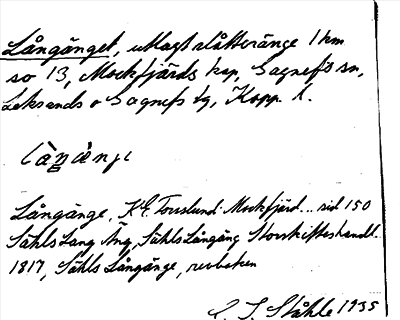 Långänget, utlagt slåtteränge 1 km
so 13, Mockfjärds kap, Gagnefs sn,
Leksands o Gagnefs tg, Kopp. l.
Långänge, K.E. Forsslund: Mockfjärd... sid 150
Såhls Lång Äng, Såhls Långäng Storskifteshandl.
1817, Såhls Långänge, revboken
C. I. Ståhle 1935